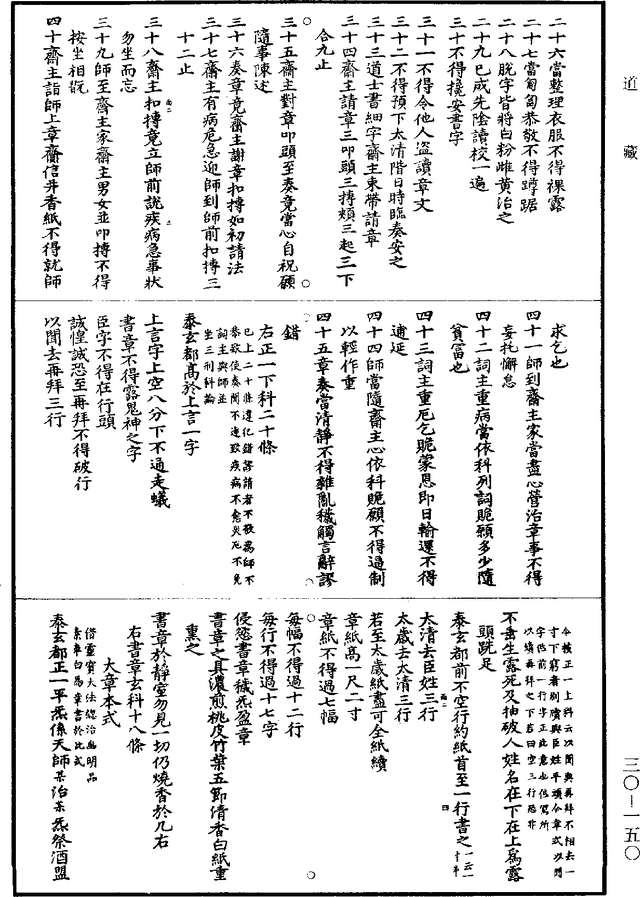 道藏
二十六當整理衣服不得裸露
二十七當匍匐恭敬不得蹲踞
二十八脫字皆將白粉雌黃治之
二十九已成先陰讀校一遍
三十不得擾安書字
三十一不得令他人盜讀章文
三十二不得預下太清階日時臨奏安之
三十三道士書細字齋主束帶請章
三十四齋主請章三叩頭三搏頰三起三下
合九止
三十五齋主對章叩頭至奏竟當心自祝願
隨事陳述
三十六奏章竟齋主謝章扣搏如初請法
三十七齋主有病危急迎師到師前扣搏三
十二止
三十八齋主扣搏竟立師前說疾病急事狀
勿坐而忘
三十九師至齋主家齋主男女並叩搏不得
按坐相翫
四十齋主詣師上章齎信并香紙不得就師
求乞也
四十一師到齋主家當盡心營治章事不得
妄托懈怠
四十二詞主重病當依科列詞賧願多少隨
貧富也
四十三詞主重厄乞賧蒙恩即日輸還不得
逋延
四十四師當隨齋主心依科賧願不得過制
以輕作重
四十五章奏當清靜不得雜亂穢觸言辭謬
錯
右正一下科二十條
已上二十條違化錯謬請者不敬為師不
恭致使奏聞不達致疾病不愈災厄不免
詞主與師並
坐三刑科論
泰玄都高於上言一字
上言字上空八分下不通走蟻
書章不得露鬼神之字
臣字不得在行頭
誠惶誠恐至再拜不得破行
以聞去再拜三行
令按正一上科云以聞與再拜不相去一
寸下窮者剔殯與臣姓平頭令章式以聞
字佐前一行字正此意也但寫所
以填再拜之下若曰空三行恐非
不書生露死及抽破人姓名在下在上為露
頭跣足
泰玄都前不空行約紙首至一行書之一云一
寸半
太清去臣姓三行
太歲去太清三行
若至太歲紙盡可全紙續
章紙高一尺二寸
章紙不得過七幅
每幅不得過十二行
每行不得過十七字
侵慾書章穢炁盈章
書章之具濃煎桃皮竹葉五節倩香白紙重
熏之
書章於靜室勿見一切仍燒香於几右
右書章玄科十八條
大章本式
借靈寶大法總治幽明品
素車白馬章書於此式
泰玄都正一平炁係天師某治某炁祭酒盟
三〇—一五〇